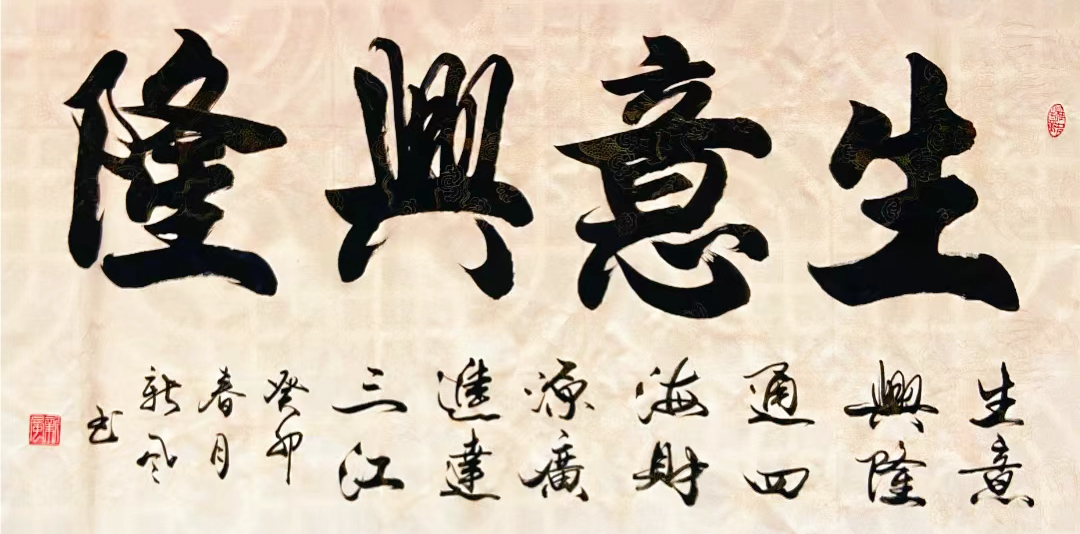 生意興隆
生意
興隆
通四
海財
源廣
進達
三江
癸卯
春月
新風
书